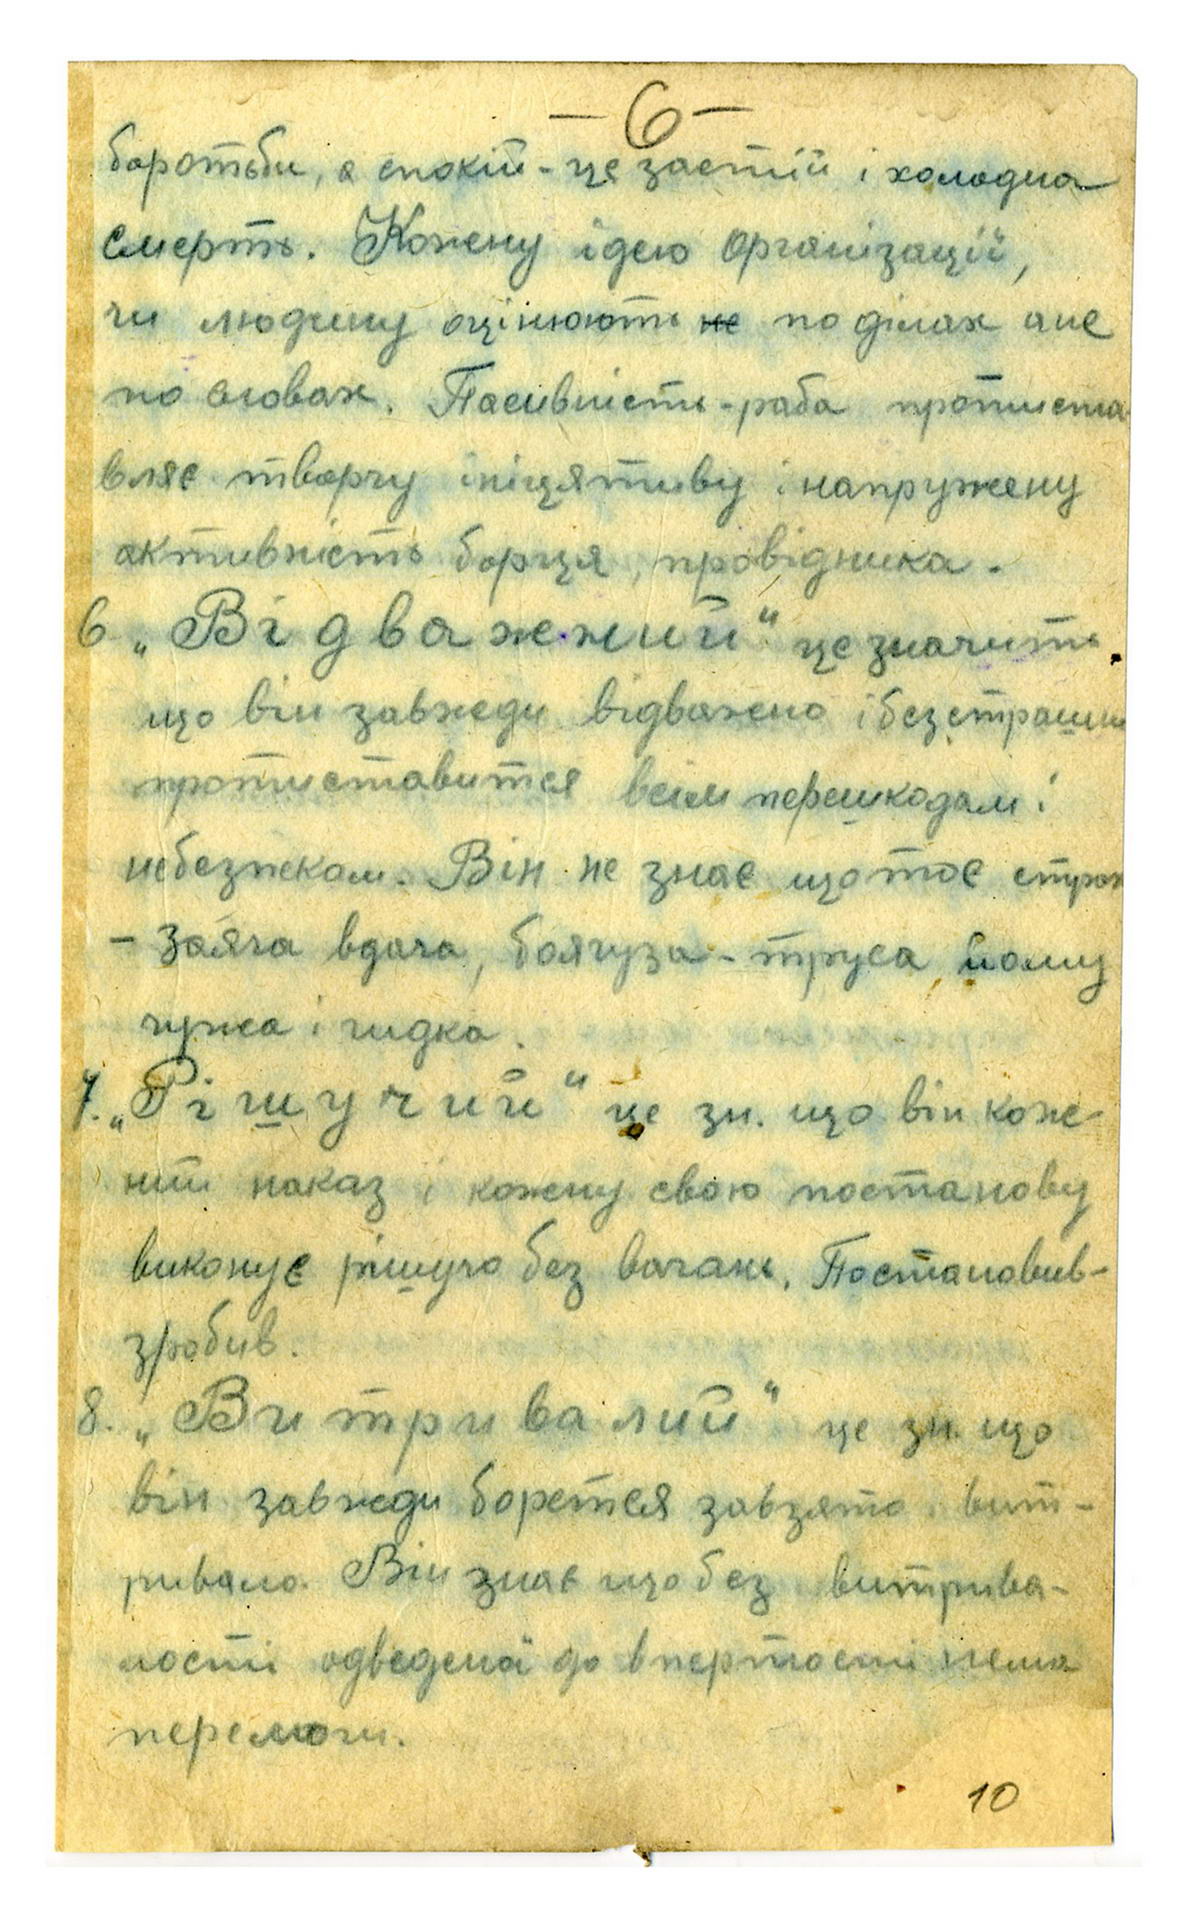 - 6 -
боротьби, а спокій - це застій і холодна
смерть. Кожну ідею організації,
чи людину оцінюють не по ділах а не
по словах. Пасивність - раба протиста
вляє творчу ініціятиву і напружену
активність борця, провідника.
6 „Відважний" це значить
що він завжди відважно і безстрашно
протиставится всім перешкодам і
небезпекам. Він не знає що то є страх
- заяча вдача, боягуза - труса йому
чужа і гидка.
7. „Рішучий" це зн. що він кож-
ний наказ і кожну свою постанову
виконує рішучо без вагань. Постановив-
зробив.
8. „Витривалий" це зн. що
він завжди бореться завзято вит-
ривало. Він знає що без витрива-
лости одведеної до впертости нема
перемоги.
10